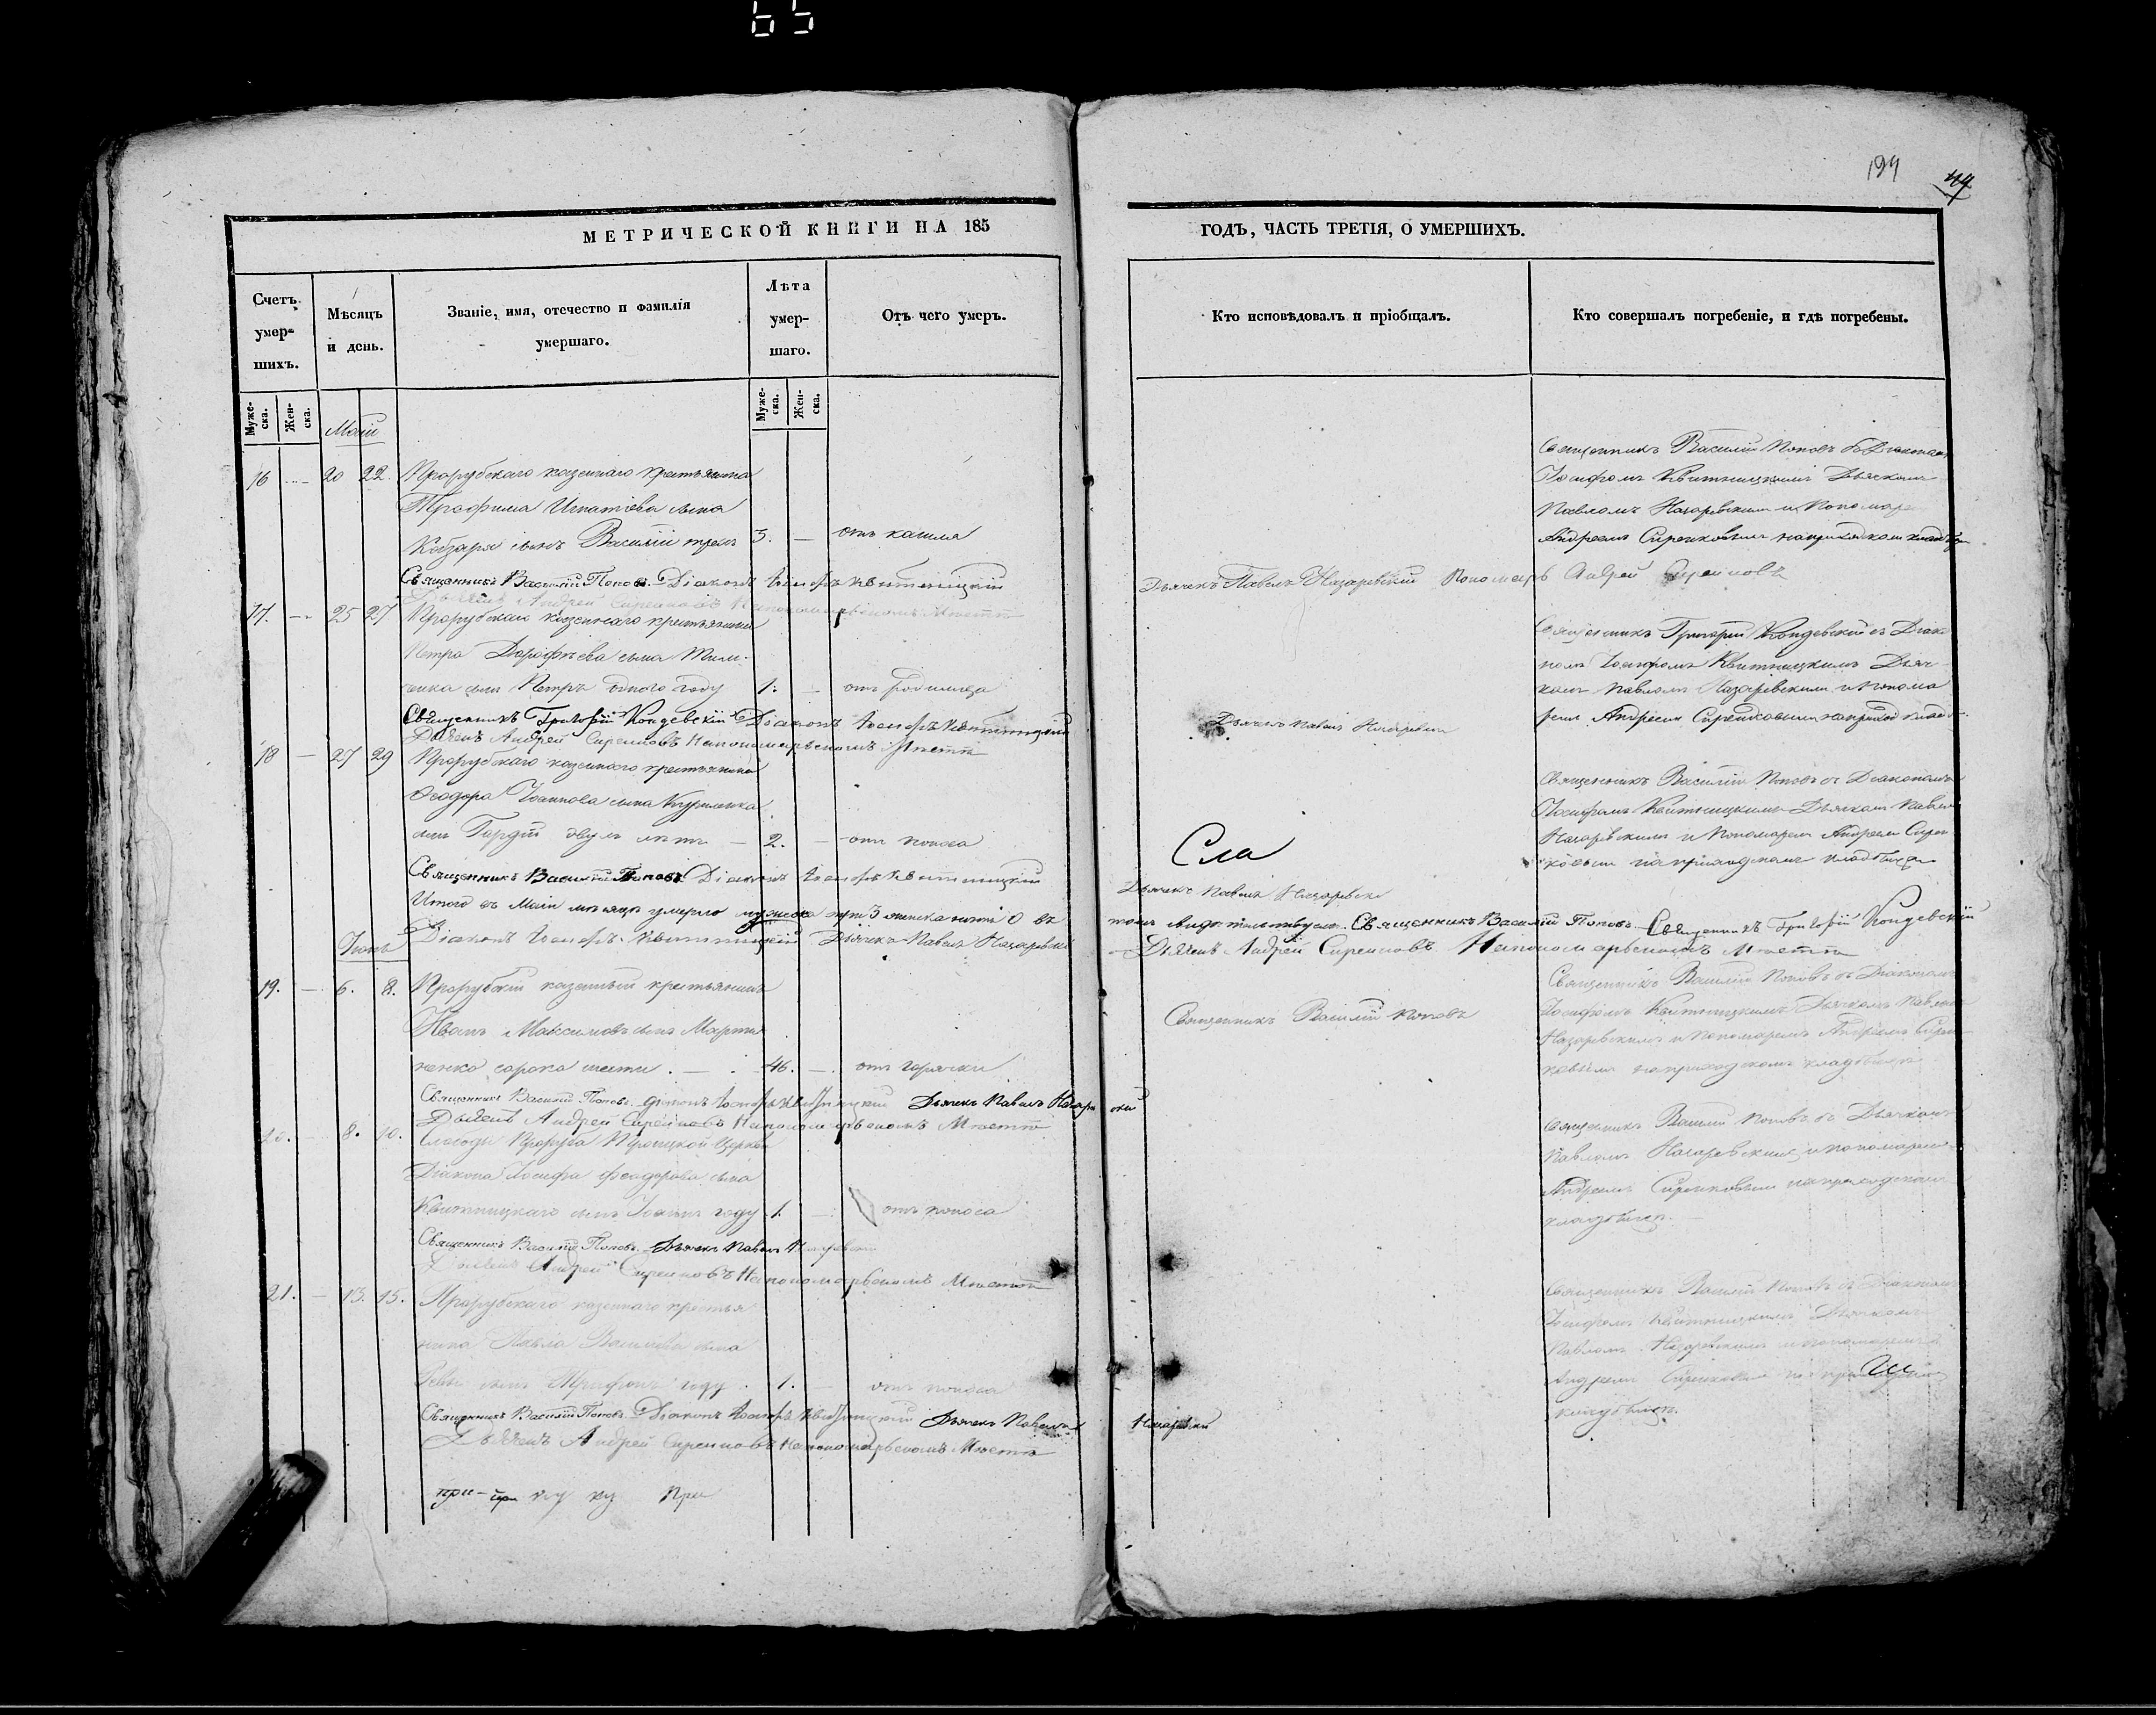 65
194
44
МЕТРИЧЕСКОЙ КНИГИ НА 185
ГОДЪ, ЧАСТЬ ТРЕТІЯ, О УМЕРШИХЪ.
Счетъ умер-шихъ.
Мѣсяцъ и день.
Званіе, имя, отечество и фамилія умершаго.
Лѣта умер-шаго.
Отъ чего умеръ.
Кто исповѣдовалъ и пріобщалъ.
Кто совершалъ погребеніе, и гдѣ погребены.
Муже-ска.
Жен-ска.
Муже-ска.
Жен-ска.
Маій
16 — 20 22. Прорубскаго казеннаго крестьянина
Трофима Игнатіева сына
Кобзаря сынъ Василій трехъ 3. — отъ кашля
Священникъ Василій Поповъ съ Діакономъ
Іосифомъ Квитницкимъ Дьячкомъ
Павломъ Назаревскимъ и Пономаре
Андреемъ Сиренковымъ на приходскомъ кладбищѣ
Священникъ Василій Поповъ. Діаконъ Іосифъ Квитницкій
Дьячекъ Павелъ Назаревскій Пономарь Андрей
Дьячекъ Андрей Сиренковъ На пономарьскомъ Мѣстѣ
17. — 25 27 казеннаго крестьянина
Петра Дорофѣева сына Тим-
сынъ Петръ одного году 1. — отъ родимца
Священникъ Григорій Кондевскій съ Діако
номъ Іосифомъ Квитницкимъ Дьяч-
комъ Павломъ Назаревскимъ и Понома
ремъ Андреемъ Сиренковымъ на приход кладб.
Священникъ Григорій Кондевскій Діаконъ Іосифъ Квитницкій
Дьячекъ Павелъ Назаревскій
Дьячекъ Андрей Сиренковъ На пономарьскомъ Мѣстѣ
18 — 27 29 Прорубскаго казеннаго крестьянина
Ѳеодора Іоаннова сына
сынъ Гордій двухъ лѣтъ — 2. — отъ поноса
Священникъ Василій Поповъ съ Діакономъ
Іосифомъ Квитницкимъ Дьячкомъ Павло
Назаревскимъ и Пономаремъ Андреемъ Сирен
ковымъ на приходскомъ кладбищѣ
Сла
Священникъ Василій Поповъ. Діаконъ Іосифъ Квитницкій
Дьячекъ Павелъ Назаревскі
Итого въ Маіи мѣсяцѣ умерло мужеска 3 женска 0 въ
томъ свидѣтельствуемъ. Священникъ Василій Поповъ. Священникъ Григорій Кондевскій
Діаконъ Іосифъ Квитницкій Дьячекъ Павелъ Назаревскій
Дьячекъ Андрей Сиренковъ На пономарьскомъ Мѣстѣ
Іюнь
19. — 6. 8. Прорубскій казенный крестьянинъ
Иванъ Максимовъ сынъ Марти
ненко сорока шести. — 46. — отъ горячки
Священникъ Василій Поповъ
Священникъ Василій Поповъ съ Діакономъ
Іосифомъ Квитницкимъ Дьячкомъ Павломъ
Назаревскимъ и Пономаремъ Андреемъ Сирен
ковымъ на приходскомъ кладбищѣ
Священникъ Василій Поповъ. Діаконъ Іосифъ Квитницкій Дьячекъ Павелъ Назаревскій
Дьячекъ Андрей Сиренковъ На пономарьскомъ Мѣстѣ
20. — 8. 10. Слободы Церкви
Діакона Іосифа Феодорова сына
Квитницкаго сынъ Іоаннъ году 1. — отъ поноса
Священникъ Василій Поповъ съ Дьячкомъ
Павломъ Назаревскимъ и пономаремъ
Андреемъ Сиренковымъ на приходскомъ
кладбищѣ. —
Священникъ Василій Поповъ. Дьячекъ Павелъ Назаревскій
Дьячекъ Андрей Сиренковъ На пономарьскомъ Мѣстѣ
21. — 13. 15. Прорубскаго казеннаго крестья
нина Павла Василіева сына
сынъ Трифонъ году. 1. — отъ поноса
Священникъ Василій Поповъ съ Діакономъ
Іосифомъ Квитницкимъ Дьячкомъ
Павломъ Назаревскимъ и пономаремъ
Андреемъ Сиренковымъ на
кладбищѣ.
Священникъ Василій Поповъ. Діаконъ Іосифъ Квитницкій Дьячекъ Павелъ Назаревскій
Дьячекъ Андрей Сиренковъ На пономарьскомъ Мѣстѣ
при